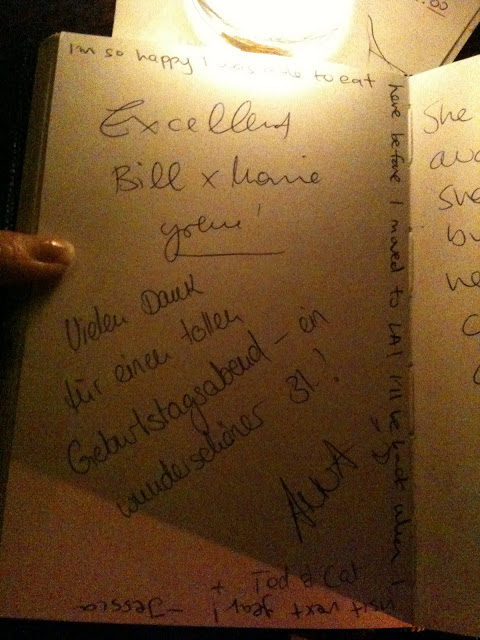 I'm so happy I was able to eat
here before I moved to LA! I'll be back when I
visit next year! – Jessica
Excellent
Bill x Marie
Vielen Dank
für einen tollen
Geburtstagsabend – ein
wunderschöner 31.!
+ Tod & Cat
She
she